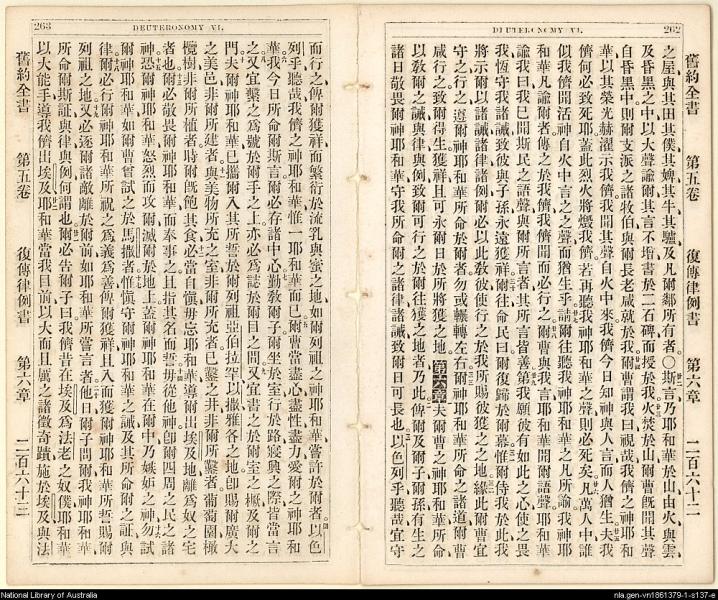 262
DEUTERONOMY VI.
舊約全書 第五卷 復傳律例書 第六章 二百六十二
之屋與其田其僕其婢其牛其驢及凡爾鄰所有者〇斯言乃耶和華於山由火與雲
及昏黑之中以大聲諭爾其言不增書於二石碑而授於我火焚於山爾曹旣聞其聲
自昏黑中則爾支派之諸牧伯與爾長老咸就於我爾曹謂我曰視哉我儕之神耶和
華以其榮光赫濯示我儕我聞其聲自火中來我儕今日知神與人言而人猶生夫我
儕何必致死耶蓋此烈火將燬我儕若再聽我神耶和華之聲則必死矣凡萬人中誰
似我儕聞活神自火中言之之聲而猶生乎請爾往聽我神耶和華之凡所諭我神耶
和華凡諭爾者傳之於我儕我儕聞而必行之爾曹與我言耶和華聞爾語聲耶和華
諭我曰我已聞斯民之語聲與爾所言者其所言皆善第我願彼有如此之心使之畏
我恆守我諸誡致彼與子孫永遠獲祥爾往命民曰爾復歸於爾幕惟爾侍我於此我
將示爾以諸誡諸律諸例爾必以此敎彼使行之於我所賜彼獲之之地緣此爾曹宜
守之行之遵爾神耶和華所命於爾者勿或輾轉左右爾神耶和華所命之諸道爾曹
咸行之致爾得生獲祥且可永爾日於所將獲之地 第六章 夫爾曹之神耶和華所命
以敎爾之誡與律與例致爾可行之於爾往獲之地者乃此俾爾及爾子爾孫有生之
諸日敬畏爾神耶和華守我所命爾之諸律諸誡致爾日可長也以色列乎聽哉宜守
263
DEUTERONOMY VI.
而行之俾爾獲祥而繁衍於流乳與蜜之地如爾列祖之神耶和華嘗許於爾者以色
列乎聽哉我儕之神耶和華惟一耶和華而已爾曹當盡心盡性盡力愛爾之神耶和
華我今日所命爾斯言爾必存諸中心勤敎爾子爾坐於室行於路寢興之際皆當言
之又宜繫之爲號於爾手之上亦必爲誌於爾目之間又宜書之於爾室之橛及爾之
門夫爾神耶和華已攜爾入其所誓於爾列祖亞伯拉罕以撒雅各之地卽賜爾廣大
之美邑非爾所建者與美物所充之室非爾所充者已鑿之井非爾所鑿者葡萄園橄
欖樹非爾所植者時爾旣飽其食必當自愼毋忘耶和華導爾出埃及地離爲奴之宅
者也爾必敬畏爾神耶和華而奉事之且指其名而誓毋從他神卽爾四周之民之諸
神恐爾神耶和華怒烈而攻爾滅爾於地上蓋爾神耶和華在爾中乃嫉妒之神勿試
爾神耶和華如爾曹嘗試之於馬撒者惟愼守爾神耶和華之誡及其所命爾之証與
律爾必行爾神耶和華所視之爲義爲善俾爾獲祥且入而獲爾神耶和華所誓賜爾
列祖之地又必逐爾諸敵離於爾前如耶和華所嘗言者他日爾子問爾我神耶和華
所命爾斯証與律與例何謂也爾必告爾子曰我儕昔在埃及爲法老之奴僕耶和華
以大能手導我儕出埃及耶和華當我目前以大而且厲之諸徵奇蹟施於埃及與法
舊約全書 第五卷 復傳律例書 第六章 二百六十三
National Library of Australia
nla.gen-vn1861379-1-s137-e